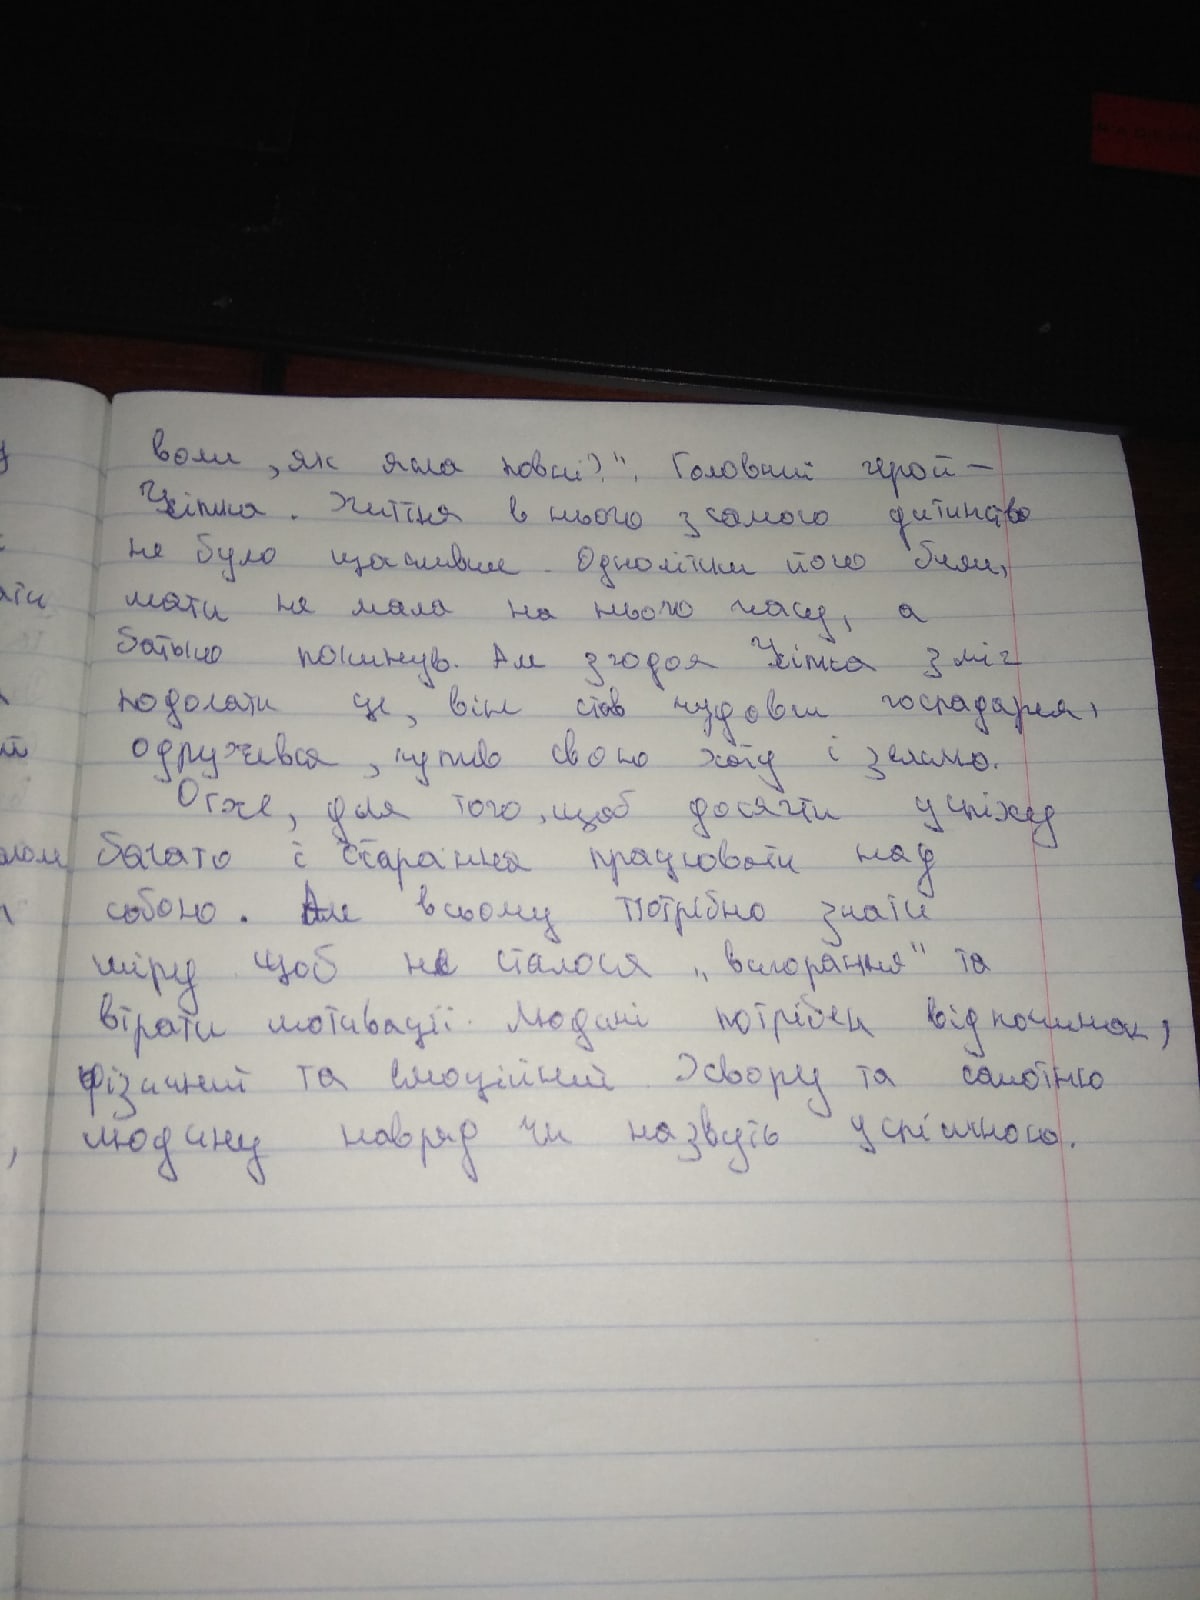 воли, як ясла повні?". Головний герой –
Чіпка. Життя в нього з самого дитинство
не було щасливим. Однолітки його били,
мати не мала на нього часу, а
батько покинув. Але згодом Чіпка зміг
подолати це, він став чудовим господарем,
одружився, купив свою хату і землю.
Отже, для того, щоб досягти успіху
багато і старанна працювати над
собою. Але всьому потрібно знати
міру щоб не сталося „вигорання" та
втрати мотивації. Людині потрібен відпочинок,
фізичний та емоційний. Хвору та самотню
людину навряд чи назвуть успішною.